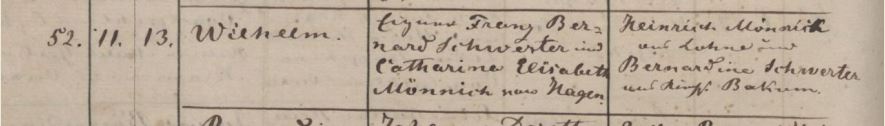 52. 11. 13. Wilhelm.
Eigner Franz Ber=
nard Schwerter und
Catharine Elisabeth
Mönnich aus Hagen
Heinrich Mönnich
aus Lohne und
Bernardine Schwerter
aus Bakum.